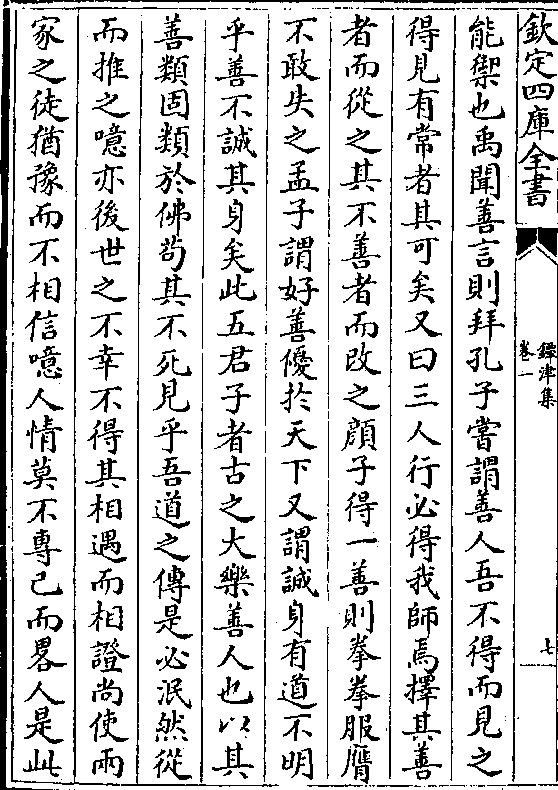 欽定四庫全書
鐔津集
卷一
七
能禦也禹聞善言則拜孔子嘗謂善人吾不得而見之
得見有常者其可矣又曰三人行必得我師焉擇其善
者而從之其不善者而改之顔子得一善則拳拳服膺
不敢失之孟子謂好善優於天下又謂誠身有道不明
乎善不誠其身矣此五君子者古之大樂善人也以其
善類固類於佛茍其不死見乎吾道之傳是必泯然從
而推之噫亦後世之不幸不得其相遇而相證尚使兩
家之徒猶豫而不相信噫人情莫不專己而畧人是此